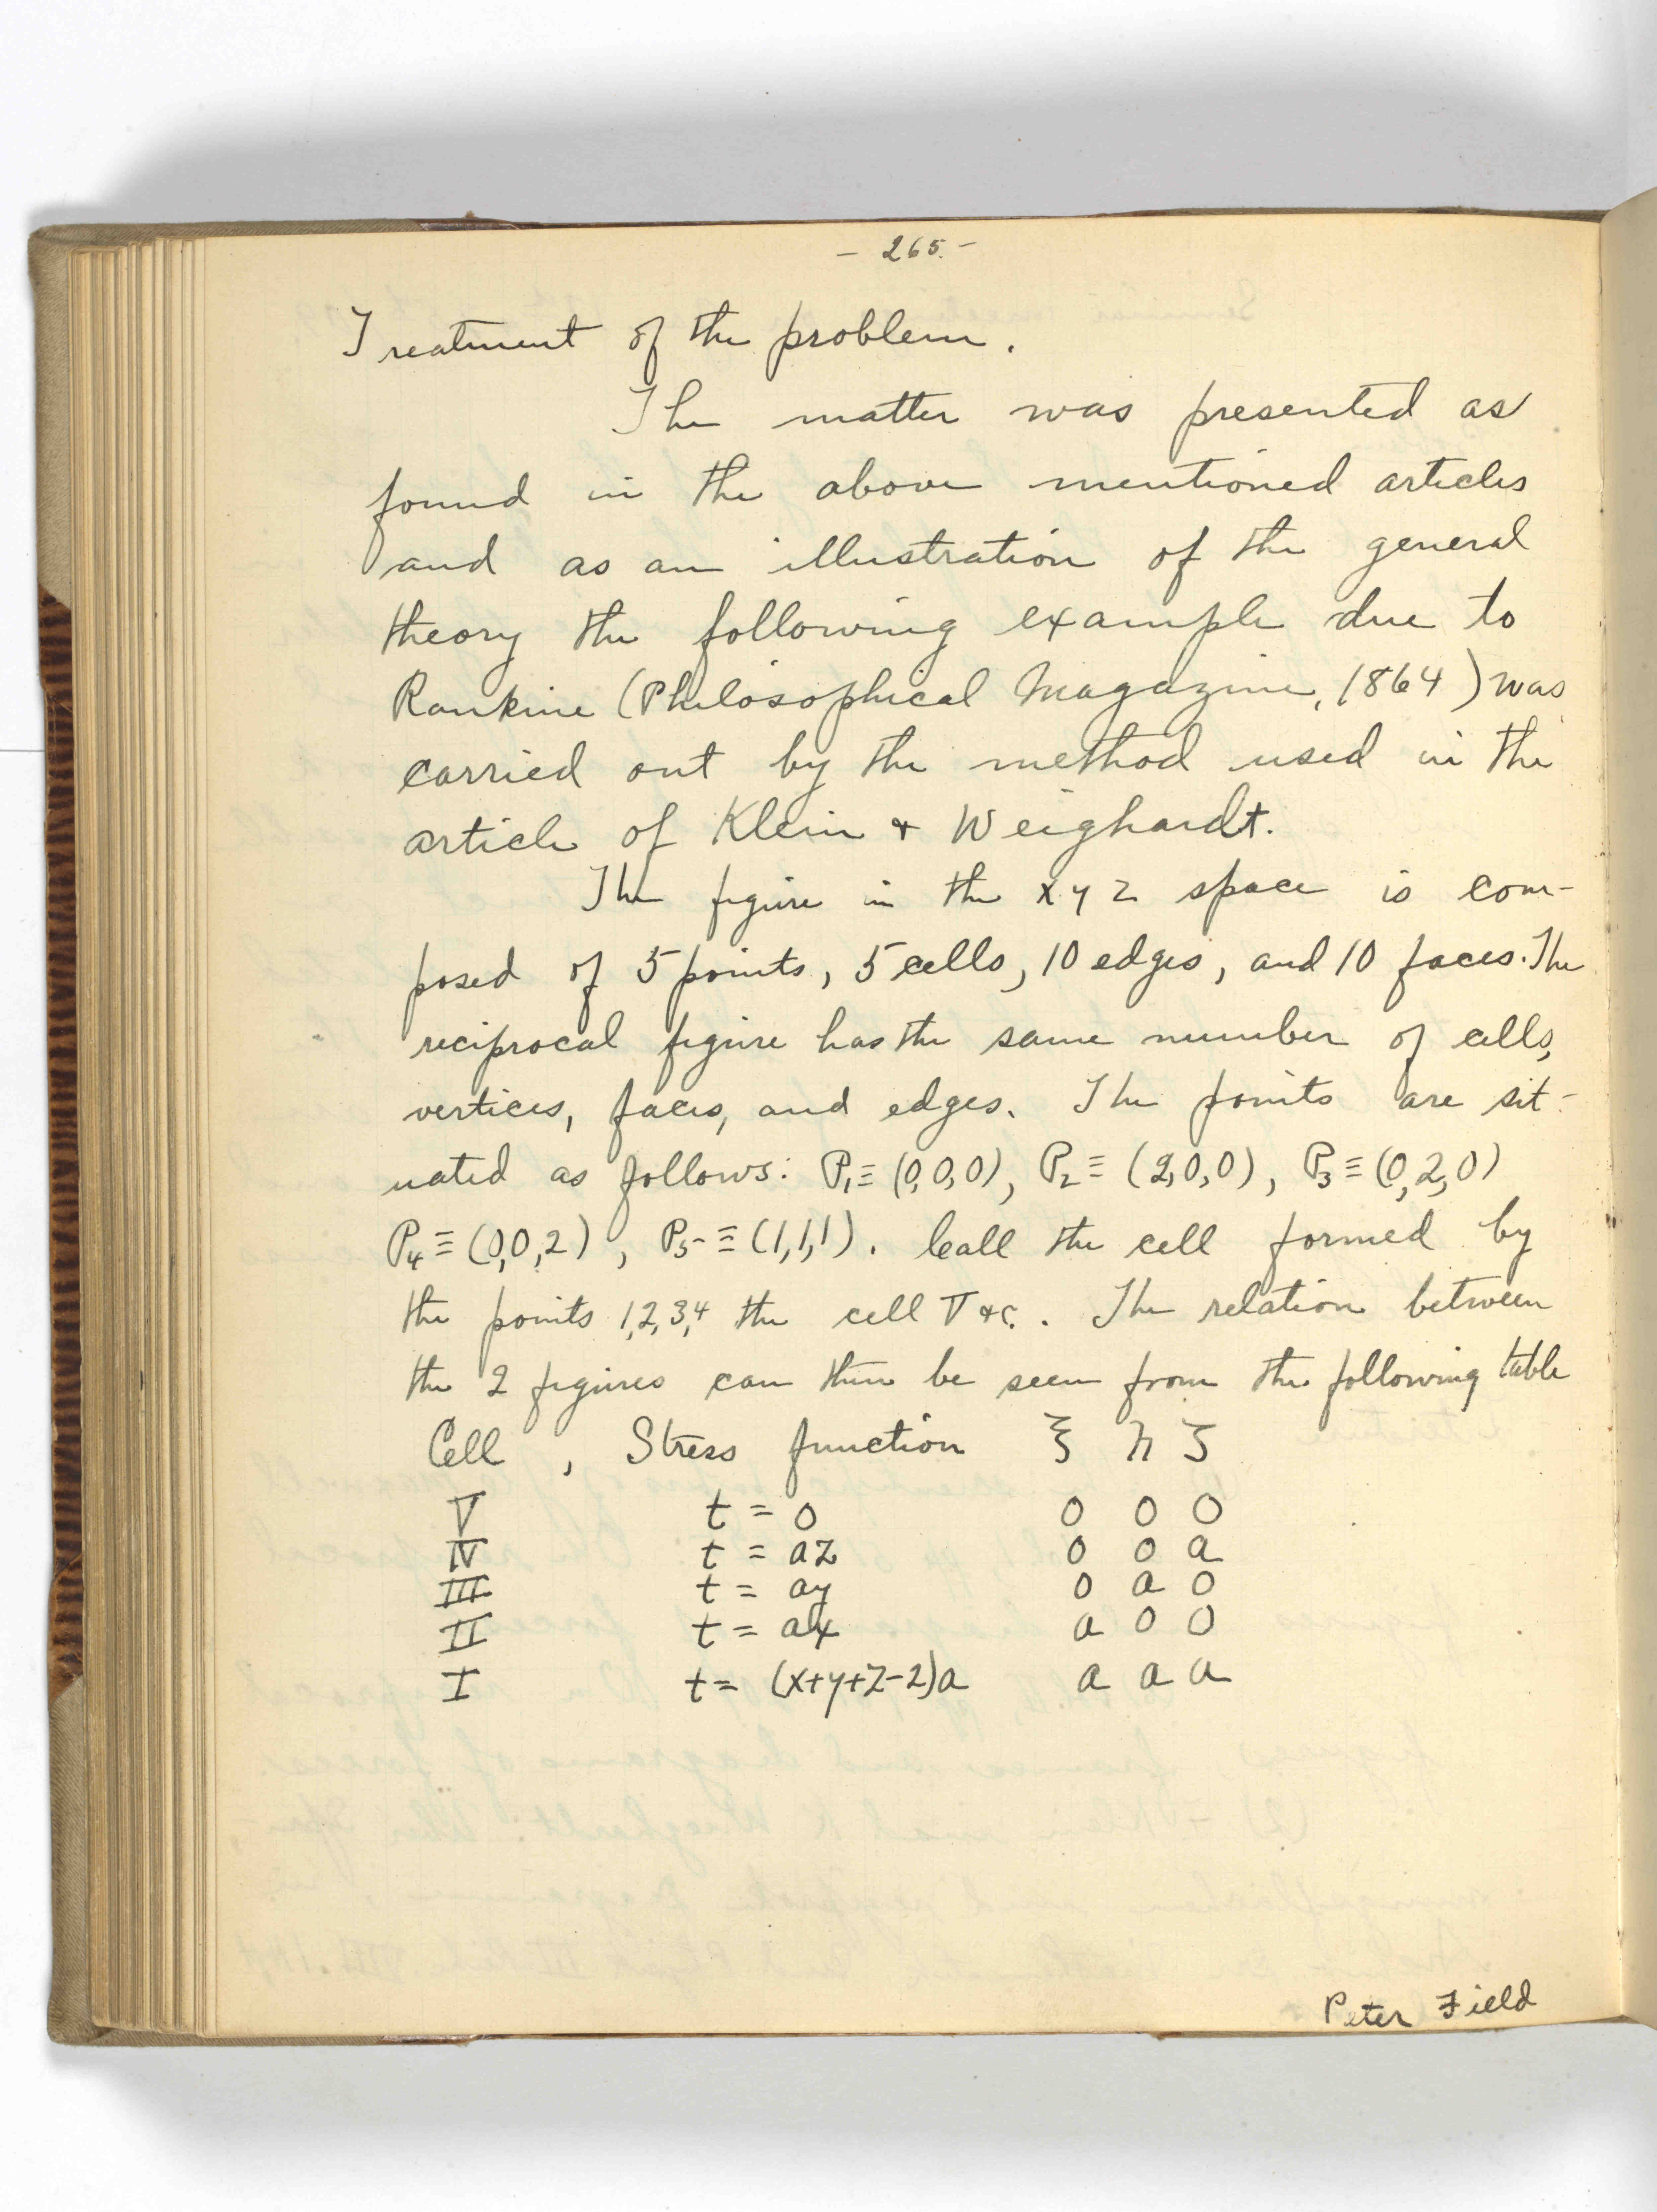 - 265. -
Treatment of the problem.
The matter was presented as
found in the above mentioned articles
and as an illustration of the general
theory the following example due to
Rankine (Philosophical Magazine, 1864) was
carried out by the method used in the
article of Klein & Weighardt.
The figure in the x y z space is com-
posed of 5 points, 5 cells, 10 edges, and 10 faces. The
reciprocal figure has the same number of cells,
vertices, faces, and edges. The points are sit-
uated as follows: P₁ ≡ (0,0,0), P₂ ≡ (2,0,0), P₃ ≡ (0,2,0)
P₄ ≡ (0,0,2), P₅ ≡ (1,1,1). Call the cell formed by
the points 1,2,3,4 the cell V &c. . The relation between
the 2 figures can then be seen from the following table
Cell , Stress function ξ η ζ
V t = 0 0 0 0
IV t = az 0 0 a
III t = ay 0 a 0
II t = ax a 0 0
I t = (x+y+z-2)a a a a
Peter Field